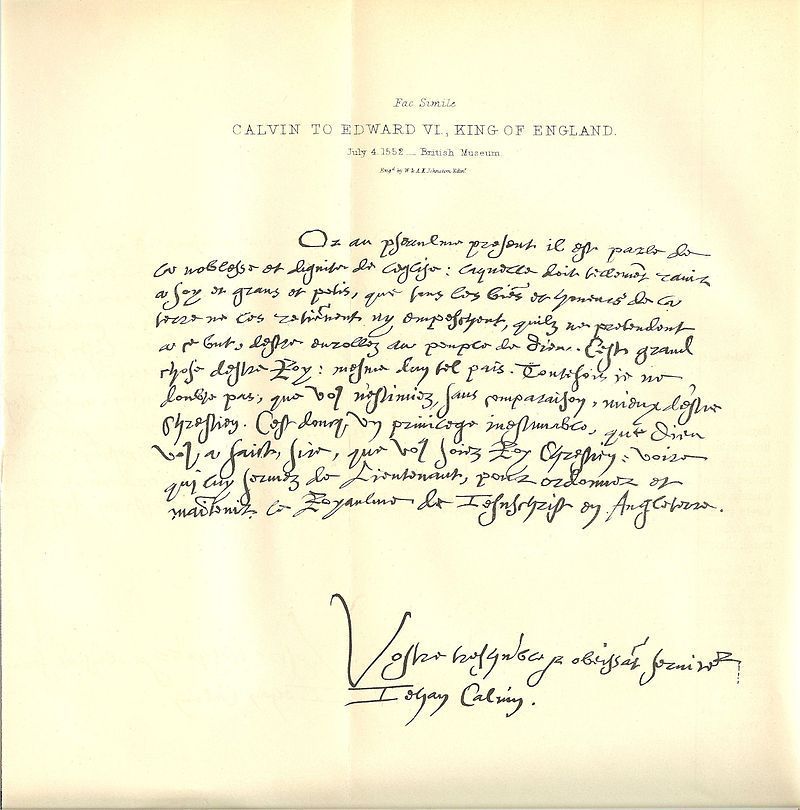 Fac Simile
CALVIN TO EDWARD VI., KING OF ENGLAND.
July 4. 1552 __ British Museum.
Engd. by W. & A. K. Johnston, Edinr.
Or au pseaulme present il est parle de
la noblesse et dignite de leglise: laquelle doit tellemēt ravir
a soy et grans et petis, que tous les biēs et honeurs de la
terre ne les retiēnent ny empeschent, quilz ne pretendent
a ce but, destre enrollez au peuple de Dieu. Cest grand
chose destre Roy: mesme dun tel pais. Toutefois ie ne
doubte pas, que vos nestimiez, sans comparaison, mieux destre
Chrestien. Cest doncq, un privilege inestimable, que Dieu
vos a faict, sire, que vos soiez Roy Chrestien: voire
qui luy servez de Lieutenant, pour ordonner et
maītenir le Royaulme de Iesuschrist en Angleterre.
Vostre treshūble & obeissāt serviter
Iehan Calvin.